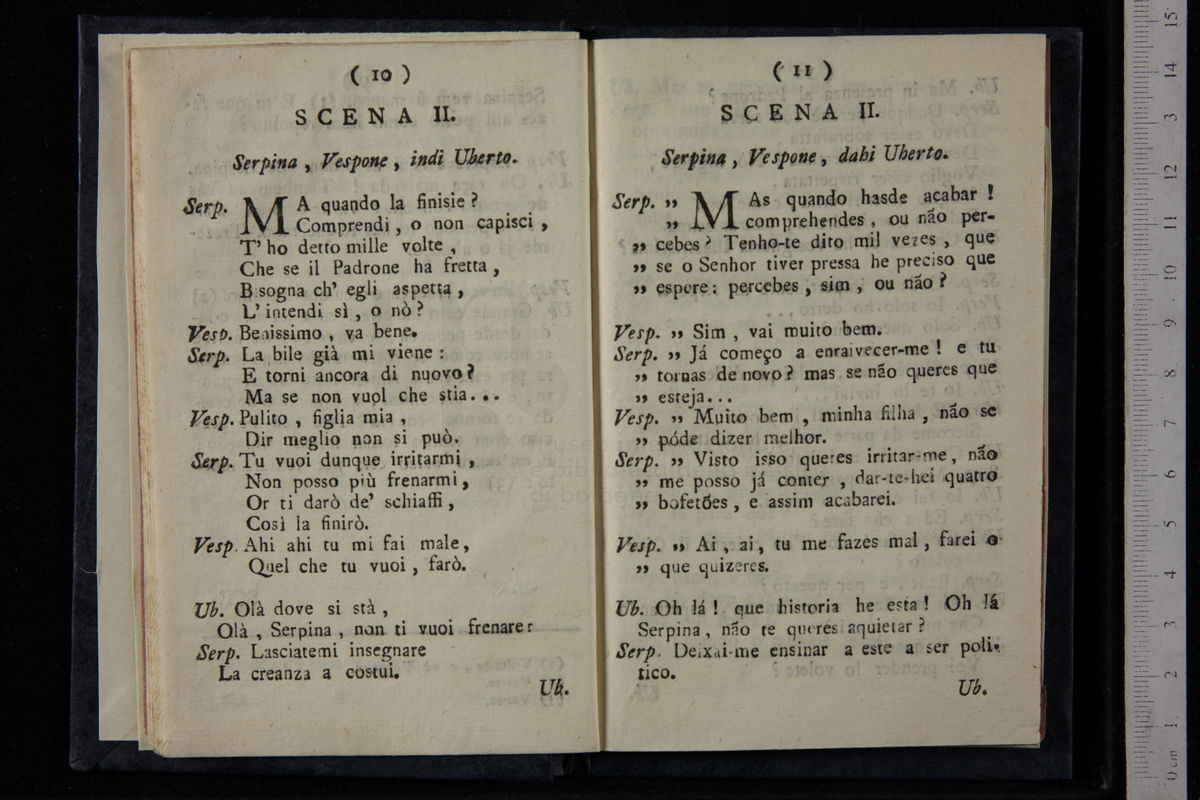 ( 10 )
SCENA II.
Serpina , Vespone , indi Uberto.
Serp. MA quando la finisie ?
Comprendi , o non capisci ,
T' ho detto mille volte ,
Che se il Padrone ha fretta ,
B sogna ch' egli aspetta ,
L' intendi sì , o nò ?
Vesp. Benissimo , va bene.
Serp. La bile già mi viene :
E torni ancora di nuovo ?
Ma se non vuol che stia...
Vesp. Pulito , figlia mia ,
Dir meglio non si può.
Serp. Tu vuoi dunque irritarmi ,
Non posso più frenarmi ,
Or ti darò de' schiaffi ,
Così la finirò.
Vesp. Ahi ahi tu mi fai male ,
Quel che tu vuoi , farò.
Ub. Olà dove si stà ,
Olà , Serpina , non ti vuoi frenare :
Serp. Lasciatemi insegnare
La creanza a costui.
Ub.
( 11 )
SCENA II.
Serpina , Vespone , dahi Uberto.
Serp. „ MAs quando hasde acabar !
„ comprehendes , ou não per-
„ cebes ? Tenho-te dito mil vezes , que
„ se o Senhor tiver pressa he preciso que
„ espere : percebes , sim , ou não ?
Vesp. „ Sim , vai muito bem.
Serp. „ Já começo a enraivecer-me ! e tu
„ tornas de novo ? mas se não queres que
„ esteja...
Vesp. „ Muito bem , minha filha , não se
„ póde dizer melhor.
Serp. „ Visto isso queres irritar-me , não
„ me posso já conter , dar-te-hei quatro
„ bofetões , e assim acabarei.
Vesp. „ Ai , ai , tu me fazes mal , farei o
„ que quizeres.
Ub. Oh lá ! que historia he esta ! Oh lá
Serpina , não te queres aquietar ?
Serp. Deixai-me ensinar a este a ser poli-
tico.
Ub.